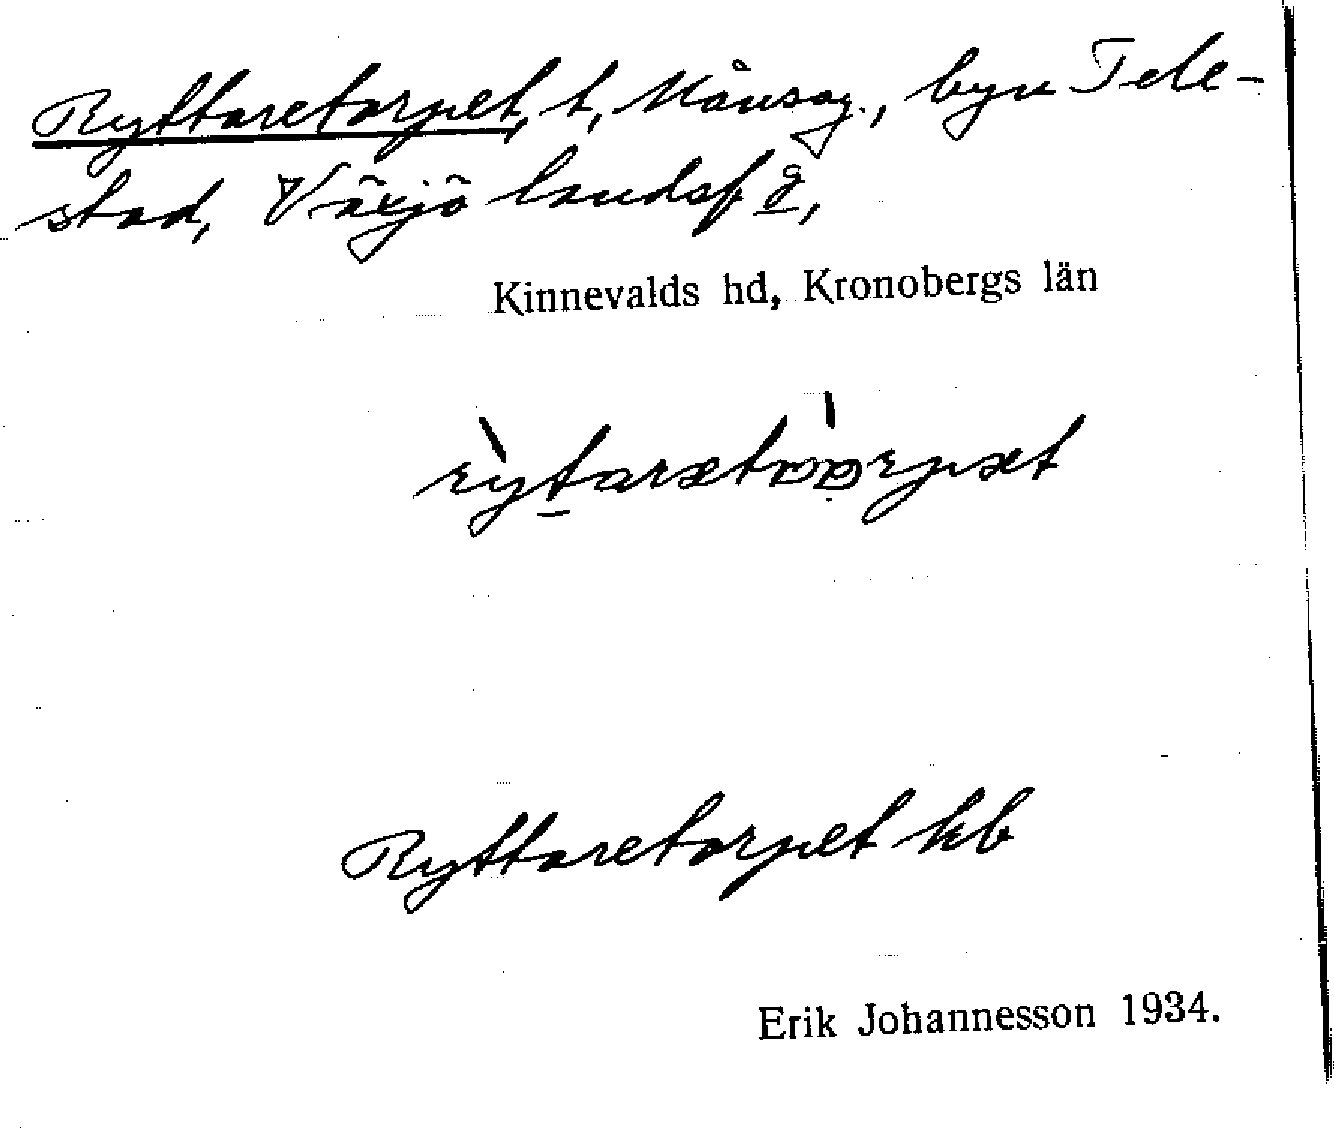 Ryttaretorpet, t, Månsag., byn Tele-
stad, Växjö landsf g,
Kinnevalds hd, Kronobergs län
Ryttaretorpet kb
Erik Johannesson 1934.